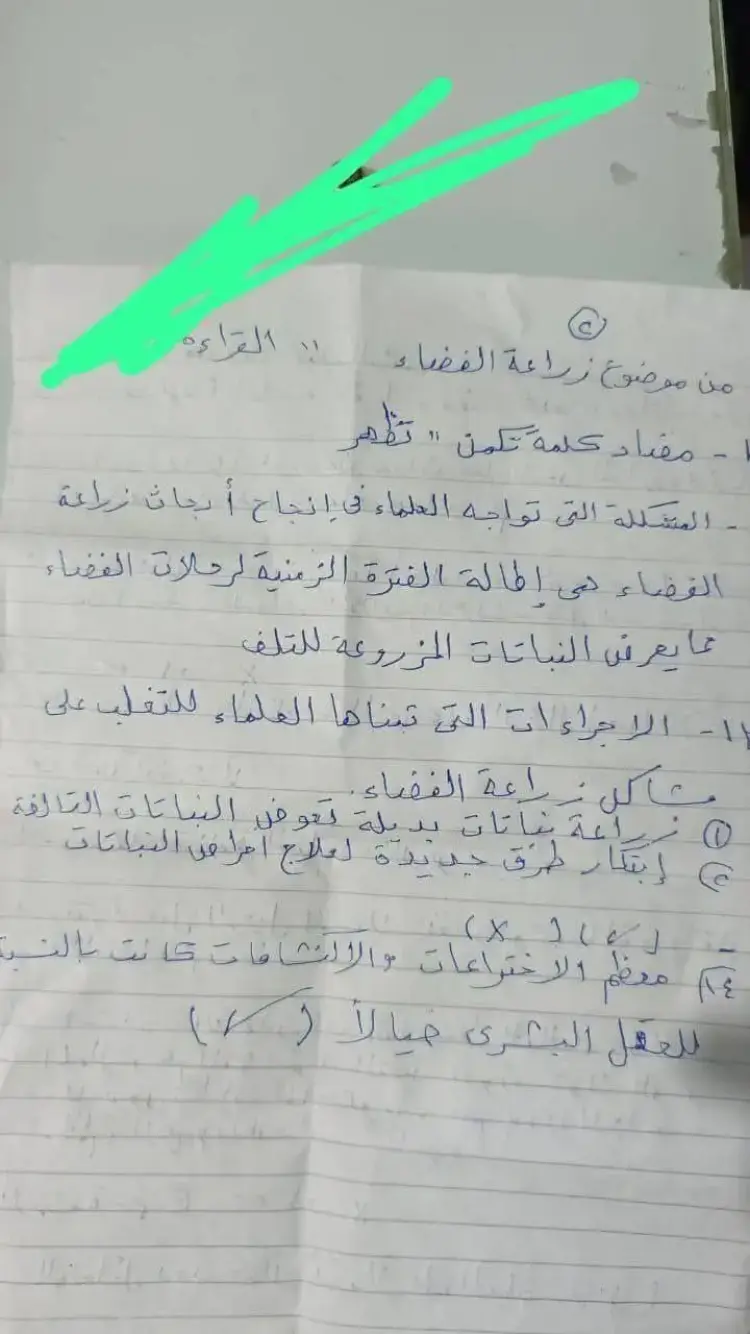 ٢
من موضوع زراعة الفضاء " القراءه
- مضاد كلمة تكمن " تظهر
- المشكلة التى تواجه العلماء فى إنجاح أبحاث زراعة
الفضاء هى إطالة الفترة الزمنية لرحلات الفضاء
مما يعرض النباتات المزروعة للتلف
١١- الاجراءات التى تبناها العلماء للتغلب على
مشاكل زراعة الفضاء.
١ زراعة نباتات بديلة تعوض النباتات التالفة
٢ إبتكار طرق جديدة لعلاج امراض النباتات
- (✓) (X)
١٤) معظم الاختراعات والاكتشافات كانت بالنسبة
للعقل البشرى خيالاً (✓)